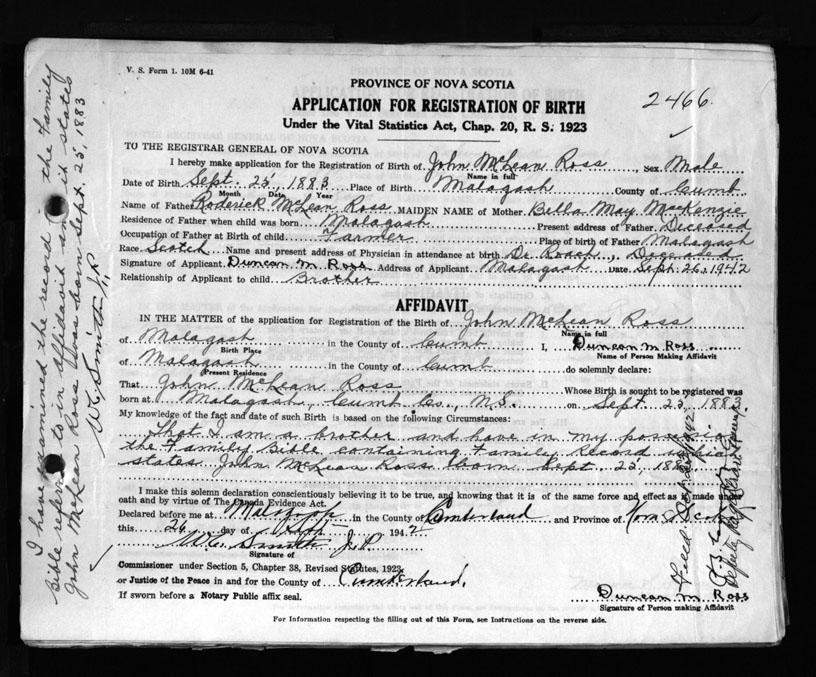 V. S. Form 1. 10M 6-41
PROVINCE OF NOVA SCOTIA
APPLICATION FOR REGISTRATION OF BIRTH
Under the Vital Statistics Act, Chap. 20, R. S. 1923
2466.
TO THE REGISTRAR GENERAL OF NOVA SCOTIA
I hereby make application for the Registration of Birth of John McLean Ross, Sex Male
Name in full
Date of Birth Sept. 25, 1883 Place of Birth Malagash County of Cumb
Month Date Year
Name of Father Roderick McLean Ross MAIDEN NAME of Mother Bella May MacKenzie
Residence of Father when child was born Malagash Present address of Father Deceased
Occupation of Father at Birth of child Farmer Place of birth of Father Malagash
Race Scotch Name and present address of Physician in attendance at birth Dr. Roach, Deceased
Signature of Applicant Duncan M Ross Address of Applicant Malagash Date Sept. 26, 1942
Relationship of Applicant to child Brother
AFFIDAVIT
IN THE MATTER of the application for Registration of the Birth of John McLean Ross
Name in full
of Malagash in the County of Cumb I, Duncan M Ross
Birth Place
Name of Person Making Affidavit
of Malagash in the County of Cumb do solemnly declare:
Present Residence
That John McLean Ross Whose Birth is sought to be registered was
born at Malagash, Cumb Co., N.S. on Sept. 25, 1883
My knowledge of the fact and date of such Birth is based on the following Circumstances:
That I am a brother and have in my possession
the Family Bible containing Family Record which
states John McLean Ross born Sept. 25, 1883
I make this solemn declaration conscientiously believing it to be true, and knowing that it is of the same force and effect as if made under
oath and by virtue of The Canada Evidence Act.
Declared before me at in the County of Cumberland and Province of Nova Scotia
this 26 day of Sept 1942
W.C. Smith J.P.
Signature of
Commissioner under Section 5, Chapter 38, Revised Statutes, 1923
or Justice of the Peace in and for the County of Cumberland.
If sworn before a Notary Public affix seal.
Duncan M Ross
Signature of Person making Affidavit
For Information respecting the filling out of this Form, see Instructions on the reverse side.
I have examined the record in the Family
Bible referred to in affidavit and it states
John McLean Ross was born Sept. 25, 1883
W.C. Smith J.P.
Filed
Deputy Registrar General